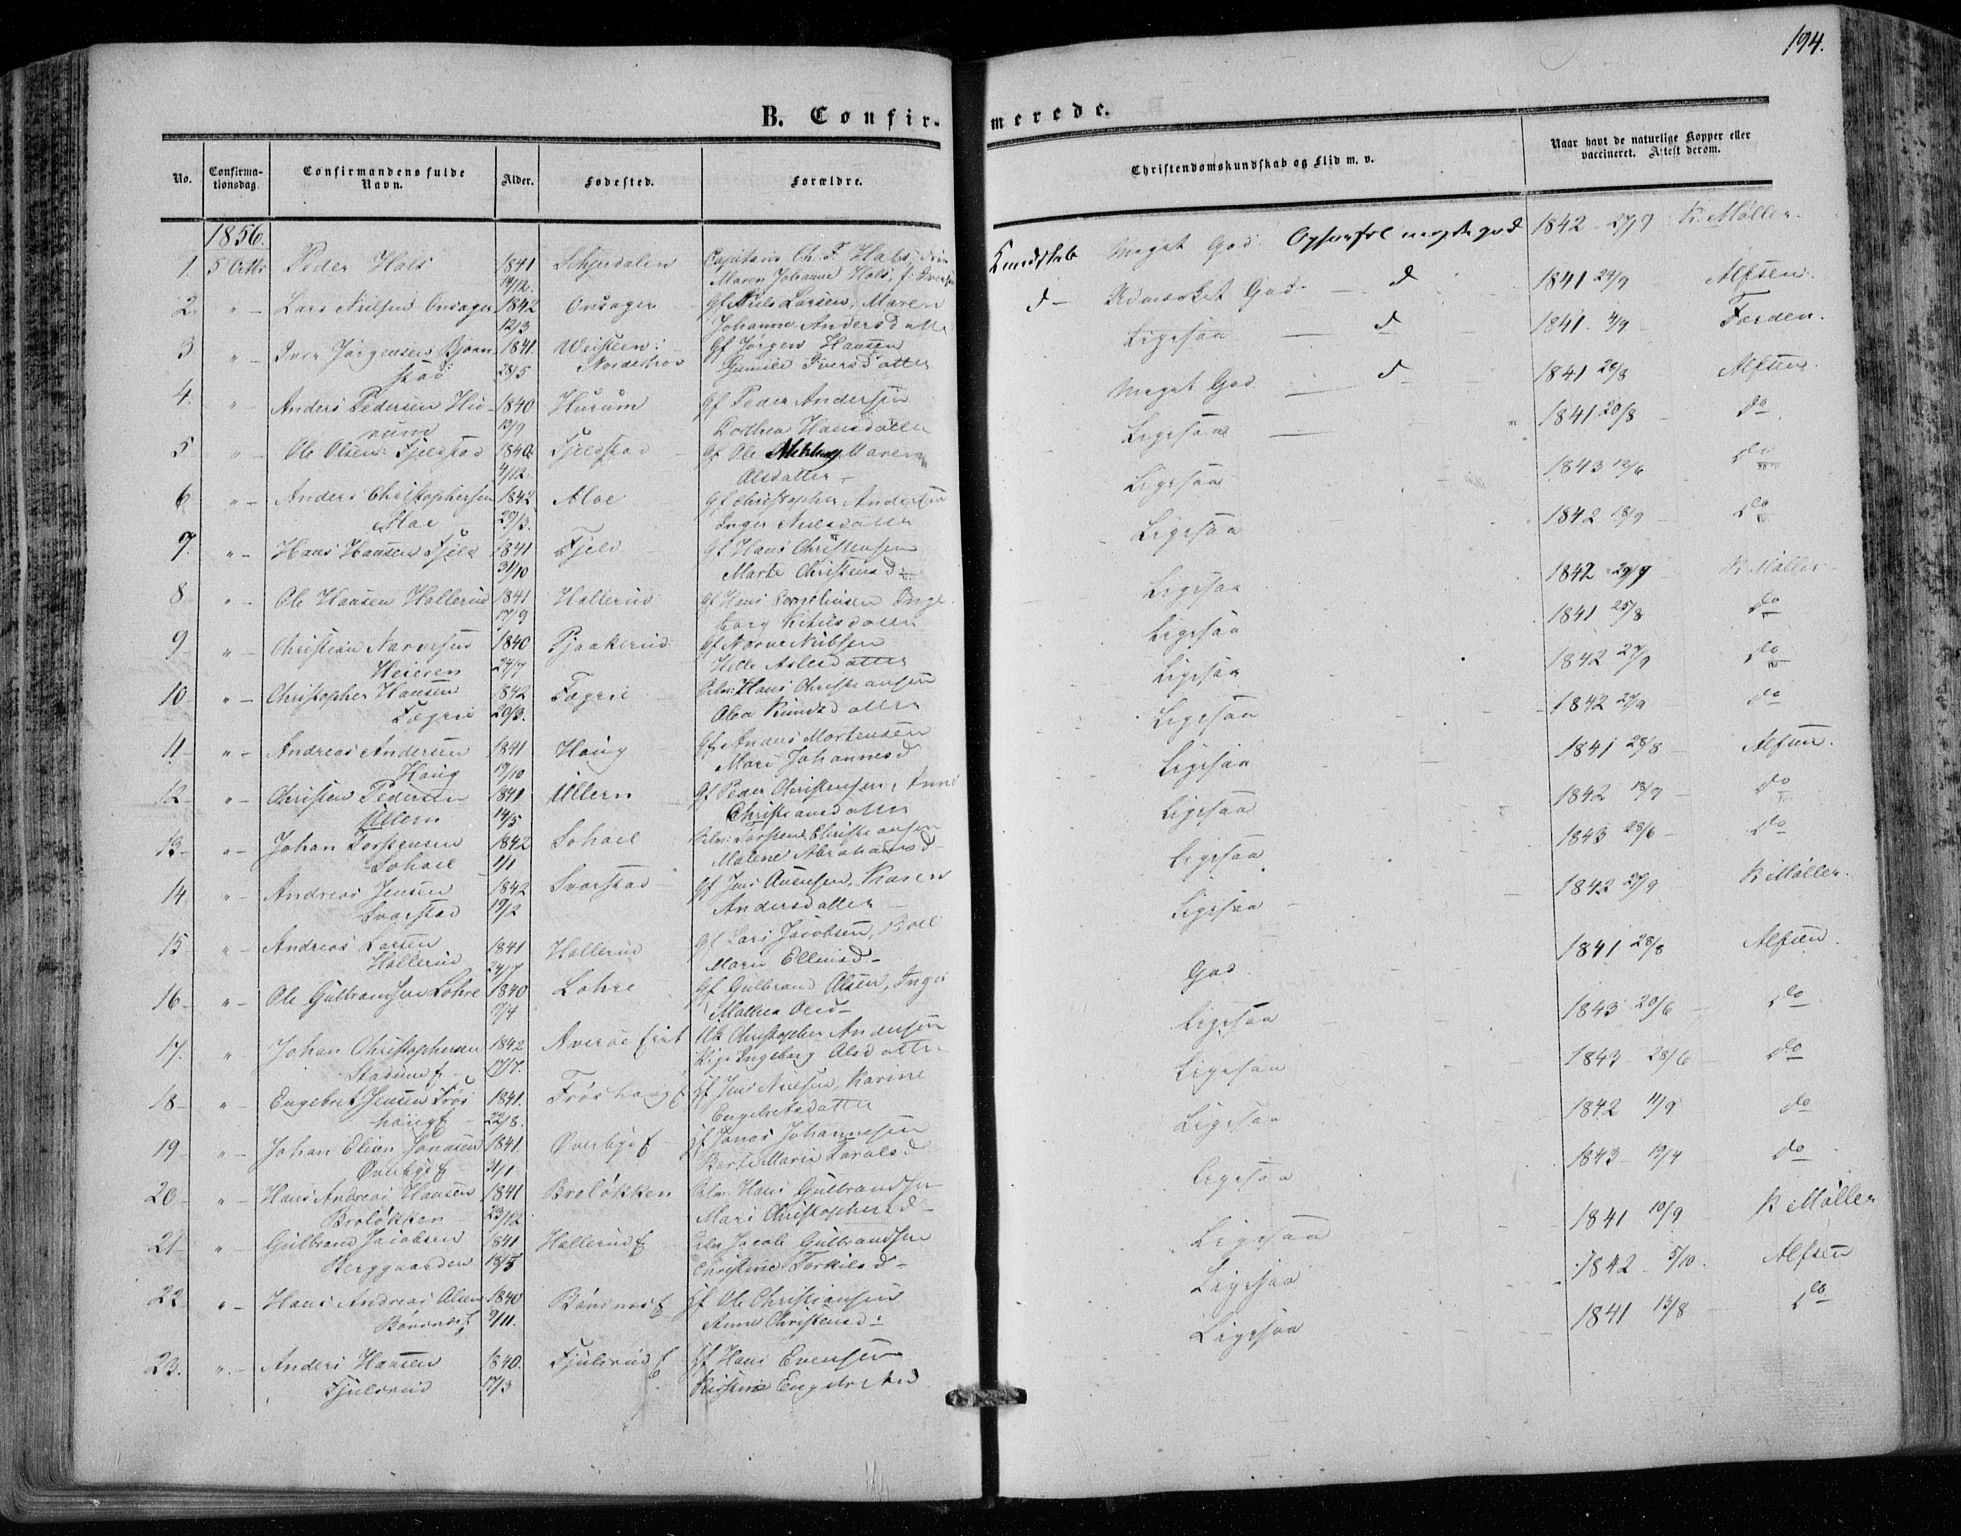 194.
B. Confirmerede.
No.
Confirma-
tionsdag.
Confirmandens fulde
Navn.
Alder.
Fødested.
Forældre.
Christendomskundskab og Flid m. v.
Naar havt de naturlige Kopper eller
vaccineret. Attest derom.
1856.
1. 5 Octbr Peder Hals 1841 Capitain Ch. F. Hals, Kundskab Meget God. Opførsel meget god 1842 27/9 K. Møller.
14/12. Maren Johanne Hals, f. Iversen
2. " Lars Nielsen Onsager 1842 Onsager Gf Niels Larsen, Maren d- Udmærket God d 1841 24/9 Alfsen.
12/3 Johanne Andersdatter
3 " Iver Jørgensen 1841. Gf Jørgen Hansen Ligesaa d 1841. 4/9 Forden.
28/5 Gunild Iversdatter
4. " Anders Pedersen Hu- 1840 Hurum Gf Peder Andersen Meget God d 1841 28/8 Alfsen.
rum 13/9 Dorthea Hansdatter
5 " Ole Olsen Fjeldstad 1840 Fjeldstad Gf Ole Maren Ligesaa 1841 20/8 do
4/12. Olsdatter
6 " Anders Christophersen 1842 Moe Gf Christopher Andersen Ligesaa 1843 12/6 do
Moe 29/3. Inger Nielsdatter
7. " Hans Hansen Fjeld 1841 Fjeld Gf Hans Christensen Ligesaa 1842 18/9 do
31/10 Marte Christensd:
8 " Ole Hansen Hollerud 1841 Hollerud Gf Hans Cornelius­sen Inge- Ligesaa 1842 29/7 K Møller
17/9 borg
9 " Christian Narvesen 1840 Gf Narve Nielsen Ligesaa 1841 25/8 do
Heieren 24/7 Helle Aslesdatter
10 " Christopher Hansen 1842 Fægrie Hans Christiansen Ligesaa 1842 27/9 do
Fægrie 20/3. Olea Knudsdatter
11 " Andreas Andersen 1841 Haug Gf Anders Mortensen Ligesaa 1842 27/9 do
Haug 19/10 Mari Johannesd
12 " Christen Pedersen 1841 Ullern Gf Peder Christensen, Anne Ligesaa 1841 28/8 Alfsen.
Ullern 14/5 Christiansdatter
13 " Johan Torstensen 1842 Torsten Christiansen Ligesaa 1842 13/9 do
1/1 Malene Abrahamsd
14 " Andreas Jensen 1842 Svarstad Gf Jens Evensen, Karen Ligesaa 1843 28/6 do
Svarstad 19/2 Andersdatter
15 " Andreas Larsen 1841 Hollerud Gf Lars Jacobsen, Ligesaa 1842 27/9 K Møller.
Hollerud 24/7 Marie
16 " Ole Gulbrandsen Lohre 1840 Lohre Gf Gulbrand Olsen, Inger God 1841 28/8 Alfsen
7/4 Mathea Olsd
17. " Johan Christophersen 1842 Christopher Andersen Ligesaa 1843 20/6 do
17/7. Ingeborg Olsdatter
18 " Engebret Jensen Frøs 1841. Frøshaug Gf Jens Nielsen, Karine Ligesaa 1843 28/6 do
haug 22/8. Engebretsdatter
19 " Johan Elias Jonasen 1841. Øverby Gf Jonas Johannesen Ligesaa 1842 11/9 do
Øverby 31/1 Berte Marie
20 " Hans Andreas Hansen 1841 Broløkken Hans Gulbrandsen Ligesaa 1843 19/4 do
Broløkken 23/12 Mari Christophersd
21 " Gulbrand Jacobsen 1841 Hollerud Jacob Gulbrandsen Ligesaa 1841 10/9 K Møller
Berggaarden 18/5 Christine Torkilsd
22 " Hans Andreas Olsen 1840 Bønsnes Gf Ole Christiansen Ligesaa 1842 5/10. Alfsen
Bønsnes 9/11. Anne Christensd:
23. " Anders Hansen 1840. Fjulsrud Gf Hans Evensen Ligesaa 1841 13/8 do
Fjulsrud 17/3 Kirstine Engebretsd